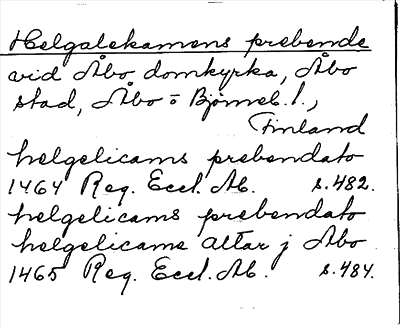 Helgalekamens prebende
vid Åbo domkyrka, Åbo
stad, Åbo o Björneb. l.,
Finland
helgelicams prebendato
1464 Reg. Eccl. Ab. s. 482.
helgelicams prebendato
helgelicams altar j Abo
1465 Reg. Eccl. Ab. s. 484.